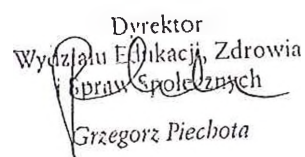 Dyrektor
Wydziału Edukacji, Zdrowia
i Spraw Społecznych
Grzegorz Piechota